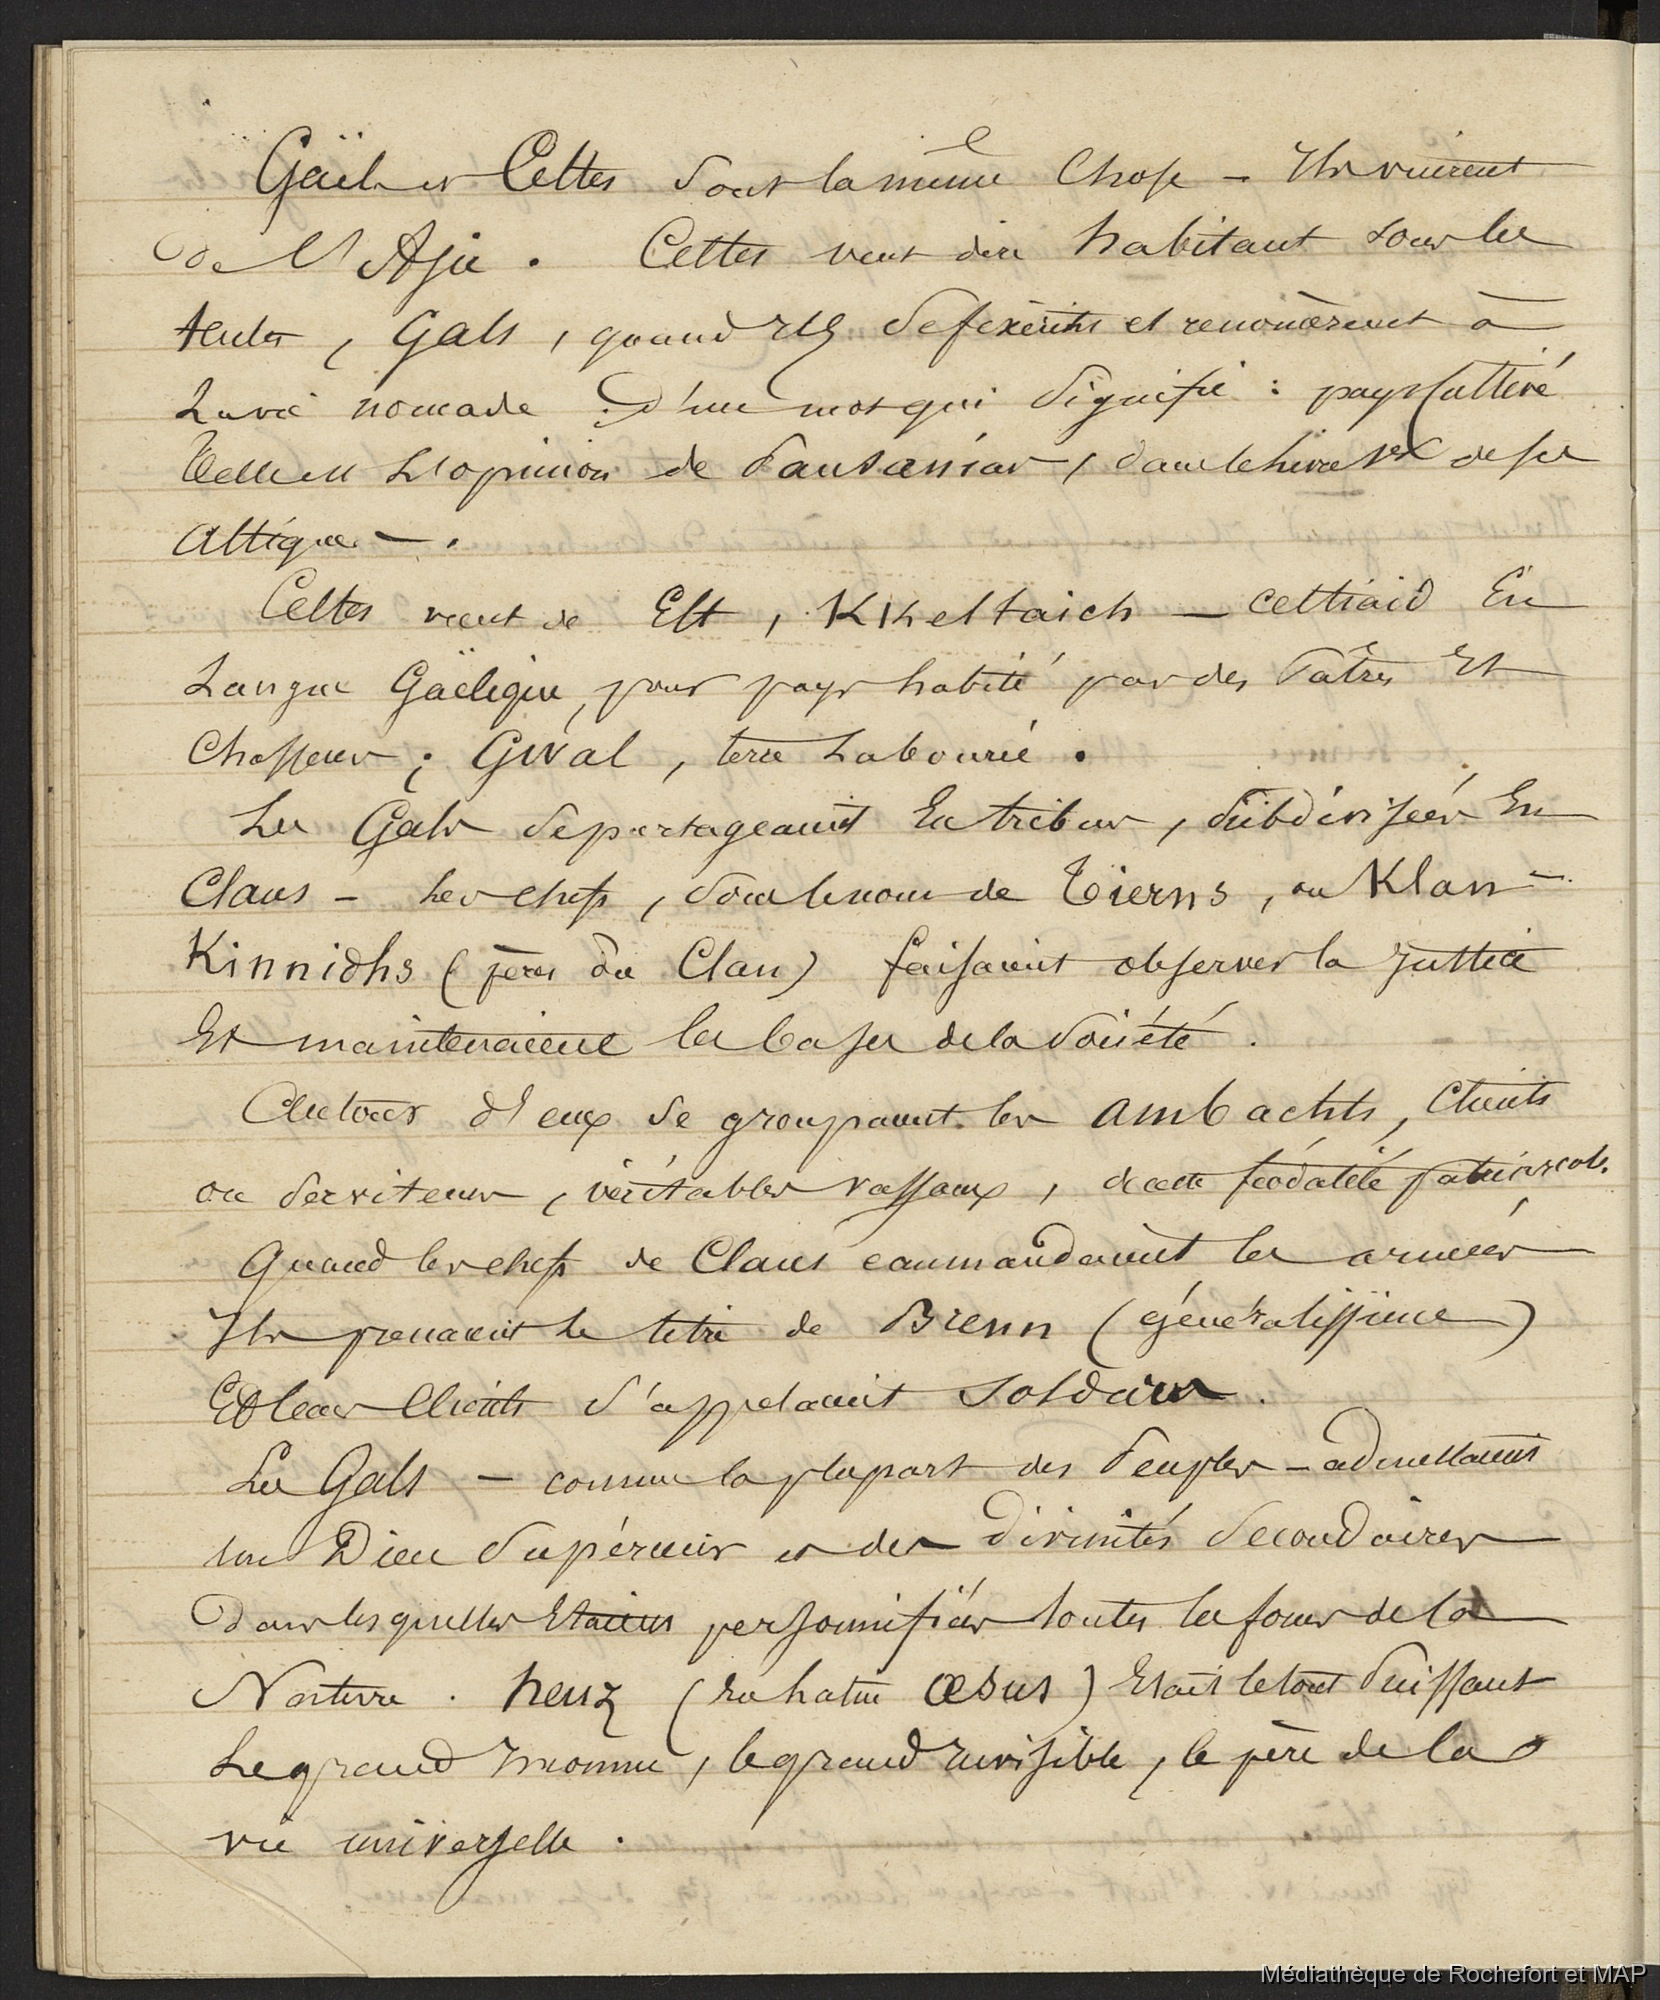 Gaëls et Celtes sont la même chose – Ils vinrent
de l'Asie. Celtes veut dire habitant sous les
tentes, Gals, quand Ils se fixèrent et renoncèrent à
La vie nomade. D'un mot qui signifie : pays cultivé
Telle est L'opinion de Pausanias, dans le livre 1er de ses
Attiques –.
Celtes vient de Elt, KKeltaich – celtiaid En
Langue Gaëlique, pour pays habité par des Pâtres Et
Chasseurs ; Gwal, terre Labourée.
Les Gals se partageaient En tribus, Subdivisées En
Clans – Les chefs, sous le nom de Tierns, ou Klan-
Kinnidhs (pères du Clan) faisaient observer la Justice
Et maintenaient les bases de la Société.
Autour d'eux se groupaient les ambachts, Clients
ou serviteurs, véritables vassaux, de cette féodalité patriarcale.
Quand les chefs de Clans commandaient les armées
Ils prenaient le titre de Brenn (généralissime)
Et leurs Clients s'appelaient Solduies.
Les Gals – comme la plupart des Peuples – admettaient
un Dieu Supérieur et des Divinités Secondaires
Dans lesquelles Etaient personnifiées toutes les forces de la
Nature. heuz (En latin Œsus) Etait le tout Puissant
Le grand Inconnu, le grand Invisible, le père de la
vie universelle.
Médiathèque de Rochefort et MAP